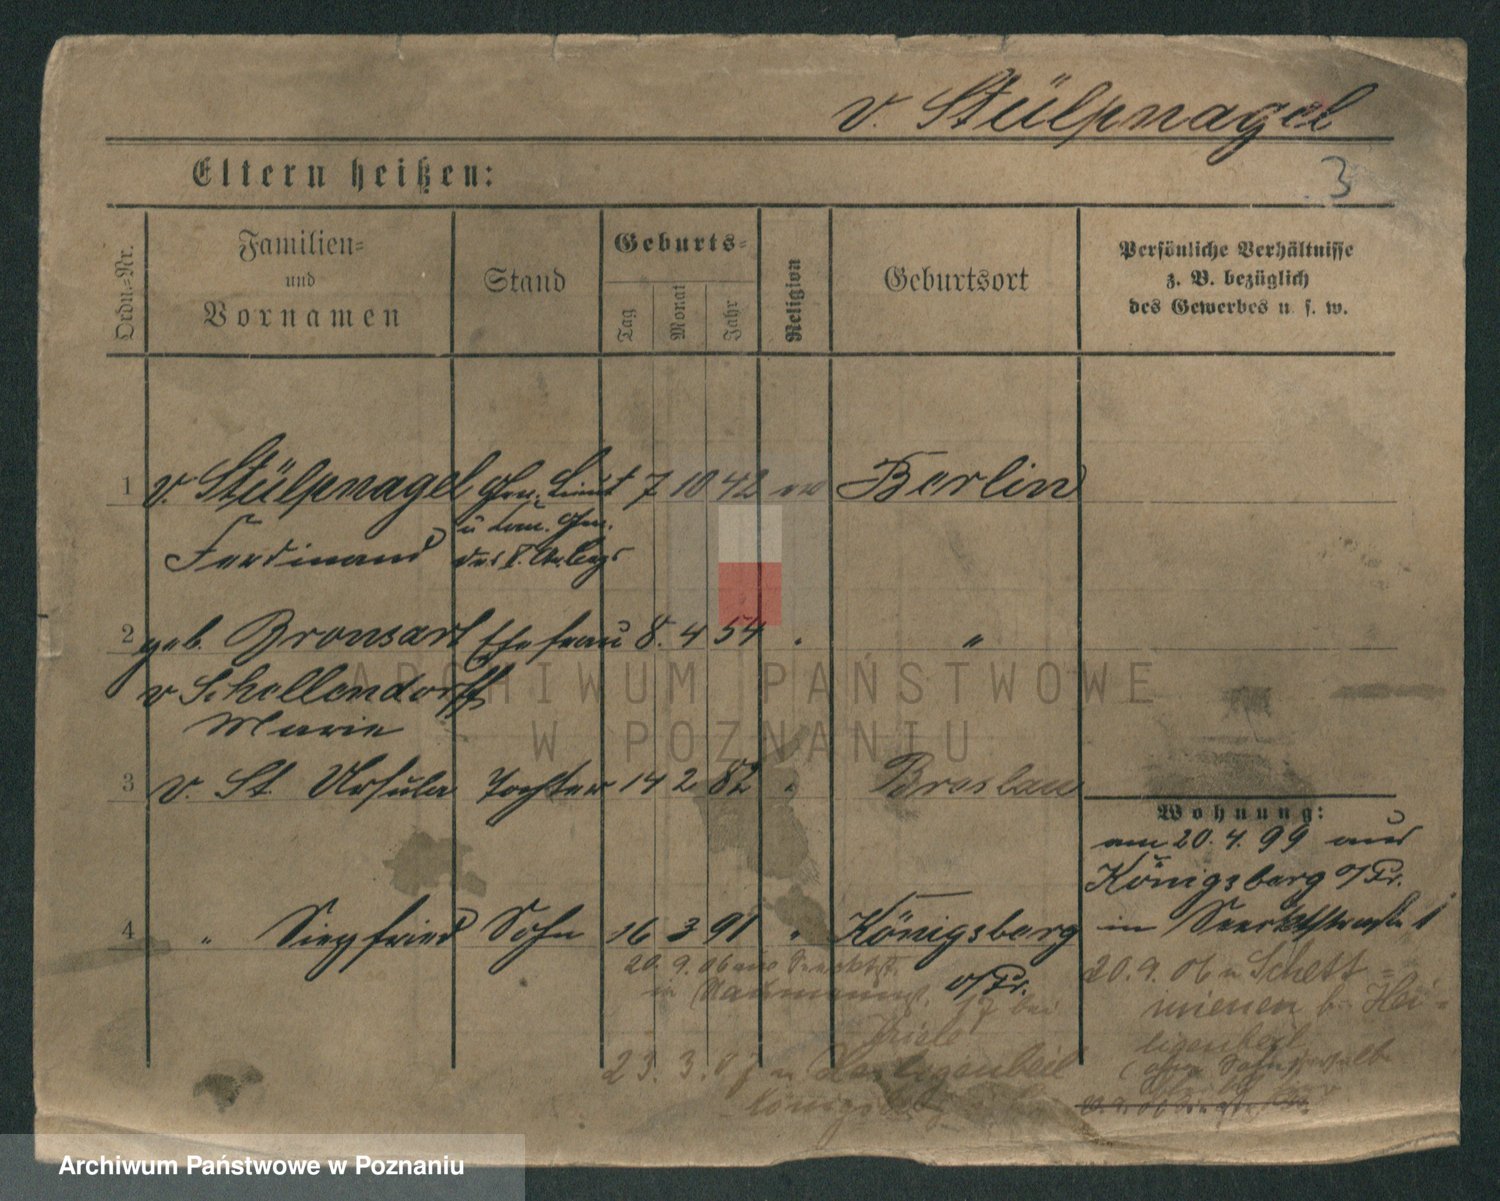 v. Stülpnagel
Eltern heißen:
3
Ordn.-Nr.
Familien-
und
Vornamen
Stand
Geburts-
Tag
Monat
Jahr
Religion
Geburtsort
Persönliche Verhältnisse
z. B. bezüglich
des Gewerbes u. s. w.
1 v. Stülpnagel Gen. Lieut 7 10 42 ev Berlin
Ferdinand u. kom. Gen.
des V. Ar. Corps
2 geb. Bronsart Ehefrau 8. 4 54 " "
v Schellendorff
Marie
3 v. St. Ursula Tochter 14 2 82 " Breslau
4 " Siegfried Sohn 16 3 91 " Königsberg
o/Pr.
Wohnung:
am 20. 4. 99 aus
Königsberg o/Pr.
in
20. 9. 06 aus
in Naumannst. 17 bei
Thiele
23. 3. 07 n Heiligenbeil
Königsberg
20. 9. 06 n Schett-
nienen b. Hei-
ligenbeil
ARCHIWUM PAŃSTWOWE
W POZNANIU
Archiwum Państwowe w Poznaniu